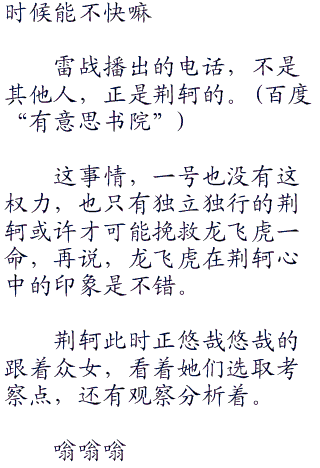 时候能不快嘛
雷战播出的电话，不是
其他人，正是荆轲的。(百度
“有意思书院”)
这事情，一号也没有这
权力，也只有独立独行的荆
轲或许才可能挽救龙飞虎一
命，再说，龙飞虎在荆轲心
中的印象是不错。
荆轲此时正悠哉悠哉的
跟着众女，看着她们选取考
察点，还有观察分析着。
嗡嗡嗡